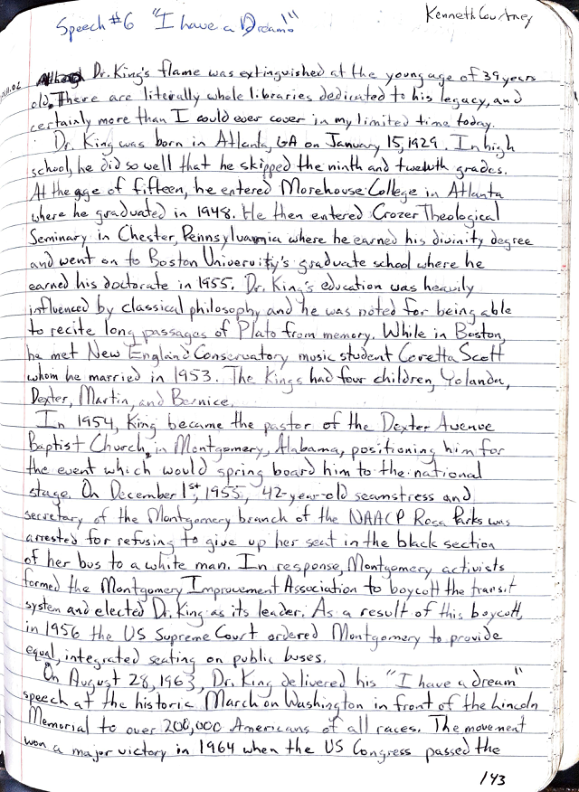 Speech #6 "I have a Dream!"
Kenneth Courtney
Dr. King's flame was extinguished at the young age of 39 years
old. There are literally whole libraries dedicated to his legacy, and
certainly more than I could ever cover in my limited time today.
Dr. King was born in Atlanta, GA on January 15, 1929. In high
school, he did so well that he skipped the ninth and twelvth grades.
At the age of fifteen, he entered Morehouse College in Atlanta
where he graduated in 1948. He then entered Crozer Theological
Seminary in Chester, Pennsylvannia where he earned his divinity degree
and went on to Boston University's graduate school where he
earned his doctorate in 1955. Dr. King's education was heavily
influenced by classical philosophy and he was noted for being able
to recite long passages of Plato from memory. While in Boston,
he met New England Conservatory music student Coretta Scott
whom he married in 1953. The Kings had four children, Yolanda,
Dexter, Martin, and Bernice.
In 1954, King became the pastor of the Dexter Avenue
Baptist Church, in Montgomery, Alabama, positioning him for
the event which would spring board him to the national
stage. On December 1st, 1955, 42-year-old seamstress and
secretary of the Montgomery branch of the NAACP Rosa Parks was
arrested for refusing to give up her seat in the black section
of her bus to a white man. In response, Montgomery activists
formed the Montgomery Improvement Association to boycott the transit
system and elected Dr. King as its leader. As a result of this boycott,
in 1956 the US Supreme Court ordered Montgomery to provide
equal, integrated seating on public buses.
On August 28, 1963, Dr. King delivered his "I have a dream"
speech at the historic March on Washington in front of the Lincoln
Memorial to over 200,000 Americans of all races. The movement
won a major victory in 1964 when the US Congress passed the
143